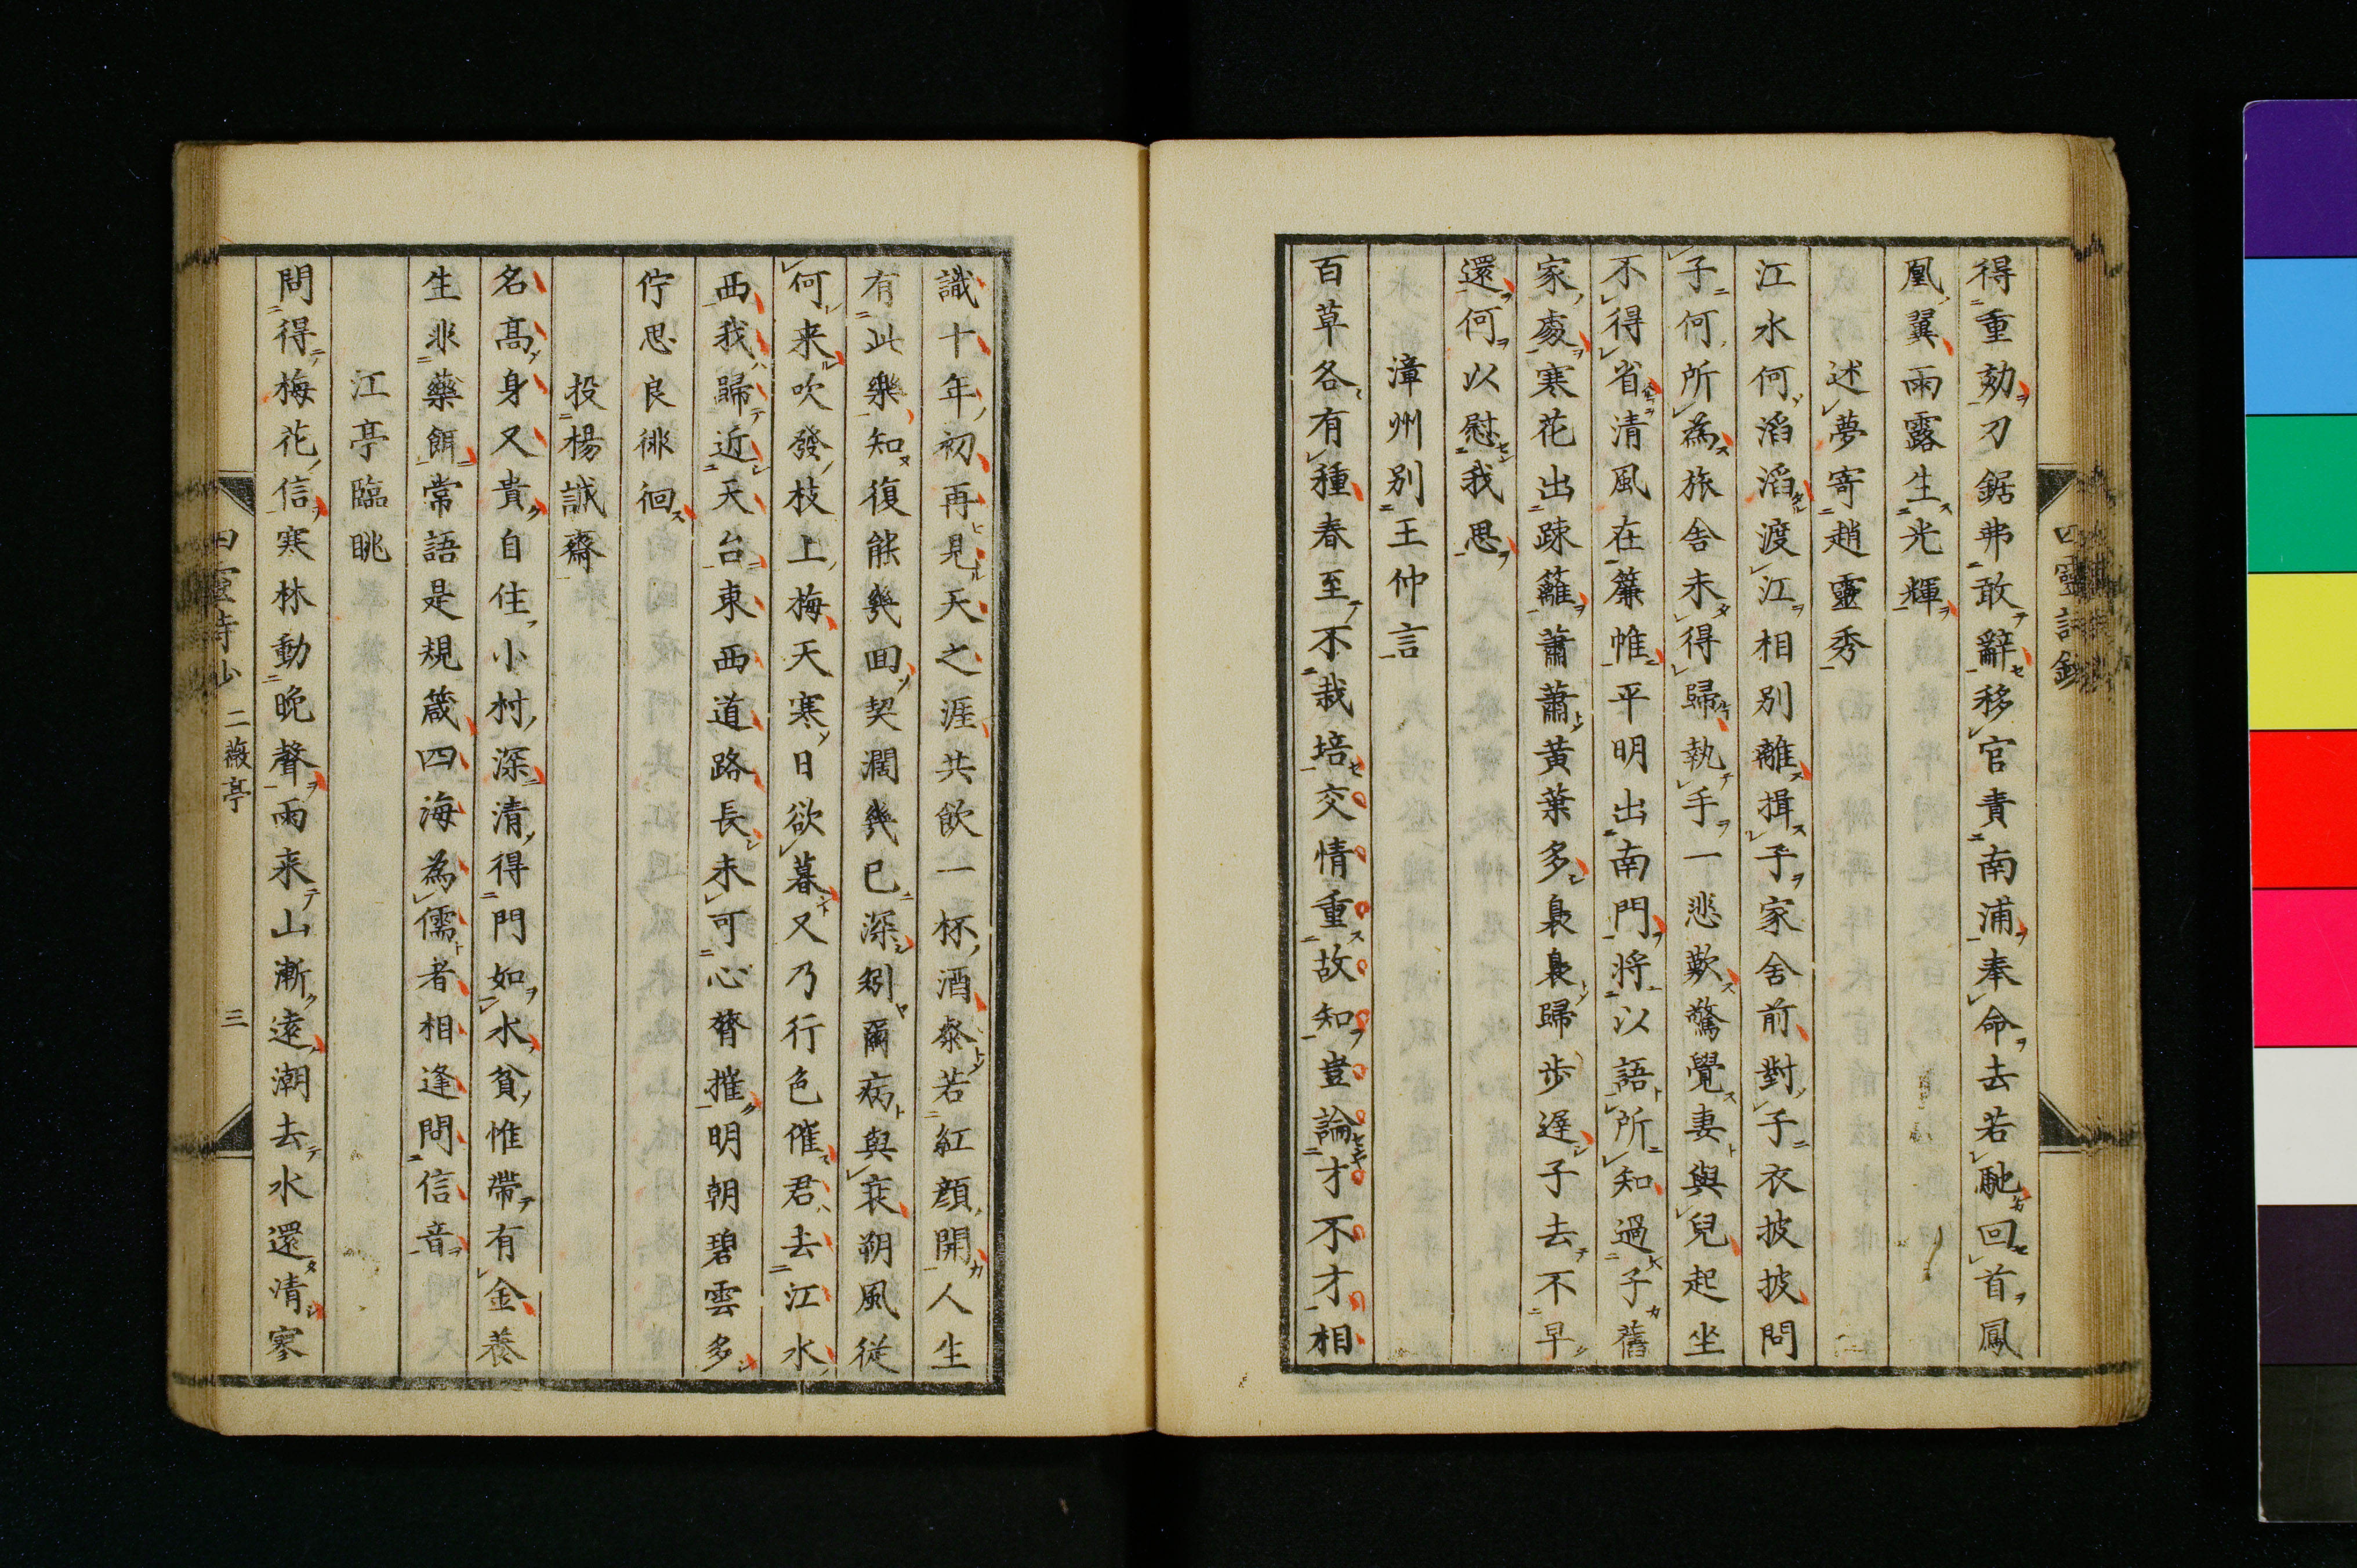 得重劾刀鋸弗敢辭移官責南浦奉命去若馳回首鳳
凰翼雨露生光輝
述夢寄趙靈秀
江水何滔滔渡江相別離揖子家舍前對子衣披披問
子何所為旅舍未得歸執手一悲歎驚覺妻與兒起坐
不得省清風在簾帷平明出南門將以語所知過子舊
家處寒花出疎籬蕭蕭黃葉多裊裊歸步遲子去不早
還何以慰我思
漳州別王仲言
百草各有種春至不栽培交情重故知豈論才不才相
四靈詩鈔
識十年初再見天之涯共飲一杯酒黍若紅顔開人生
有此樂知復能幾回契濶幾已深矧爾病與衰朔風従
何来吹發枝上梅天寒日欲暮又乃行色催君去江水
西我歸近天台東西道路長未可心膂摧明朝碧雲多
佇思良徘徊
投楊誠齋
名高身又貴自住小村深清得門如水貧惟帶有金養
生非藥餌常語是規箴四海為儒者相逢問信音
江亭臨眺
問得梅花信寒林動晩聲雨来山漸遠潮去水還清寥
四靈詩鈔 二薇亭 三